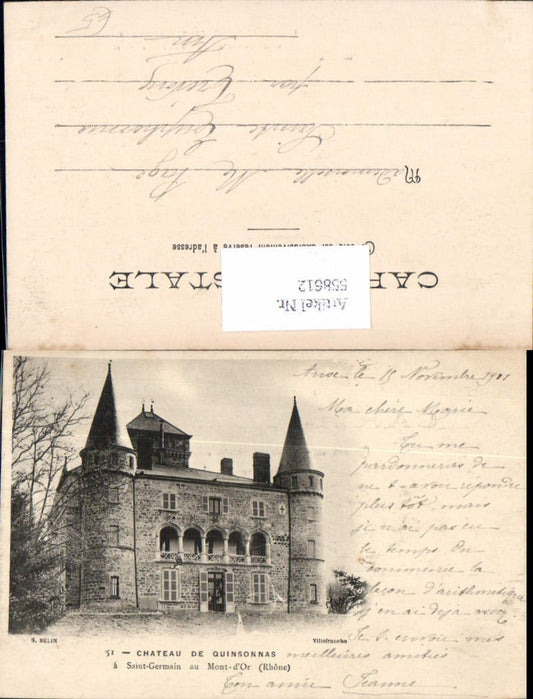 CARTE POSTALE
Ce côté est exclusivement réservé à l'adresse
Artikel Nr.
558612
Mademoiselle M. Page
Sainte Euphémie
par Trévoux
Ain
Anse le 15 Novembre 1901
Ma chère Marie
Tu me
pardonneras de
ne t'avoir répondre
plus tôt, mais
je n'ai pas eu
le temps. On
commence la
leçon d'arithmétique
j'en ai déjà assez
Je t'envoie mes
meilleures amitiés
Ton amie Jeanne
G. BELIN
Villefranche
51 — CHATEAU DE QUINSONNAS
à Saint-Germain au Mont-d'Or (Rhône)